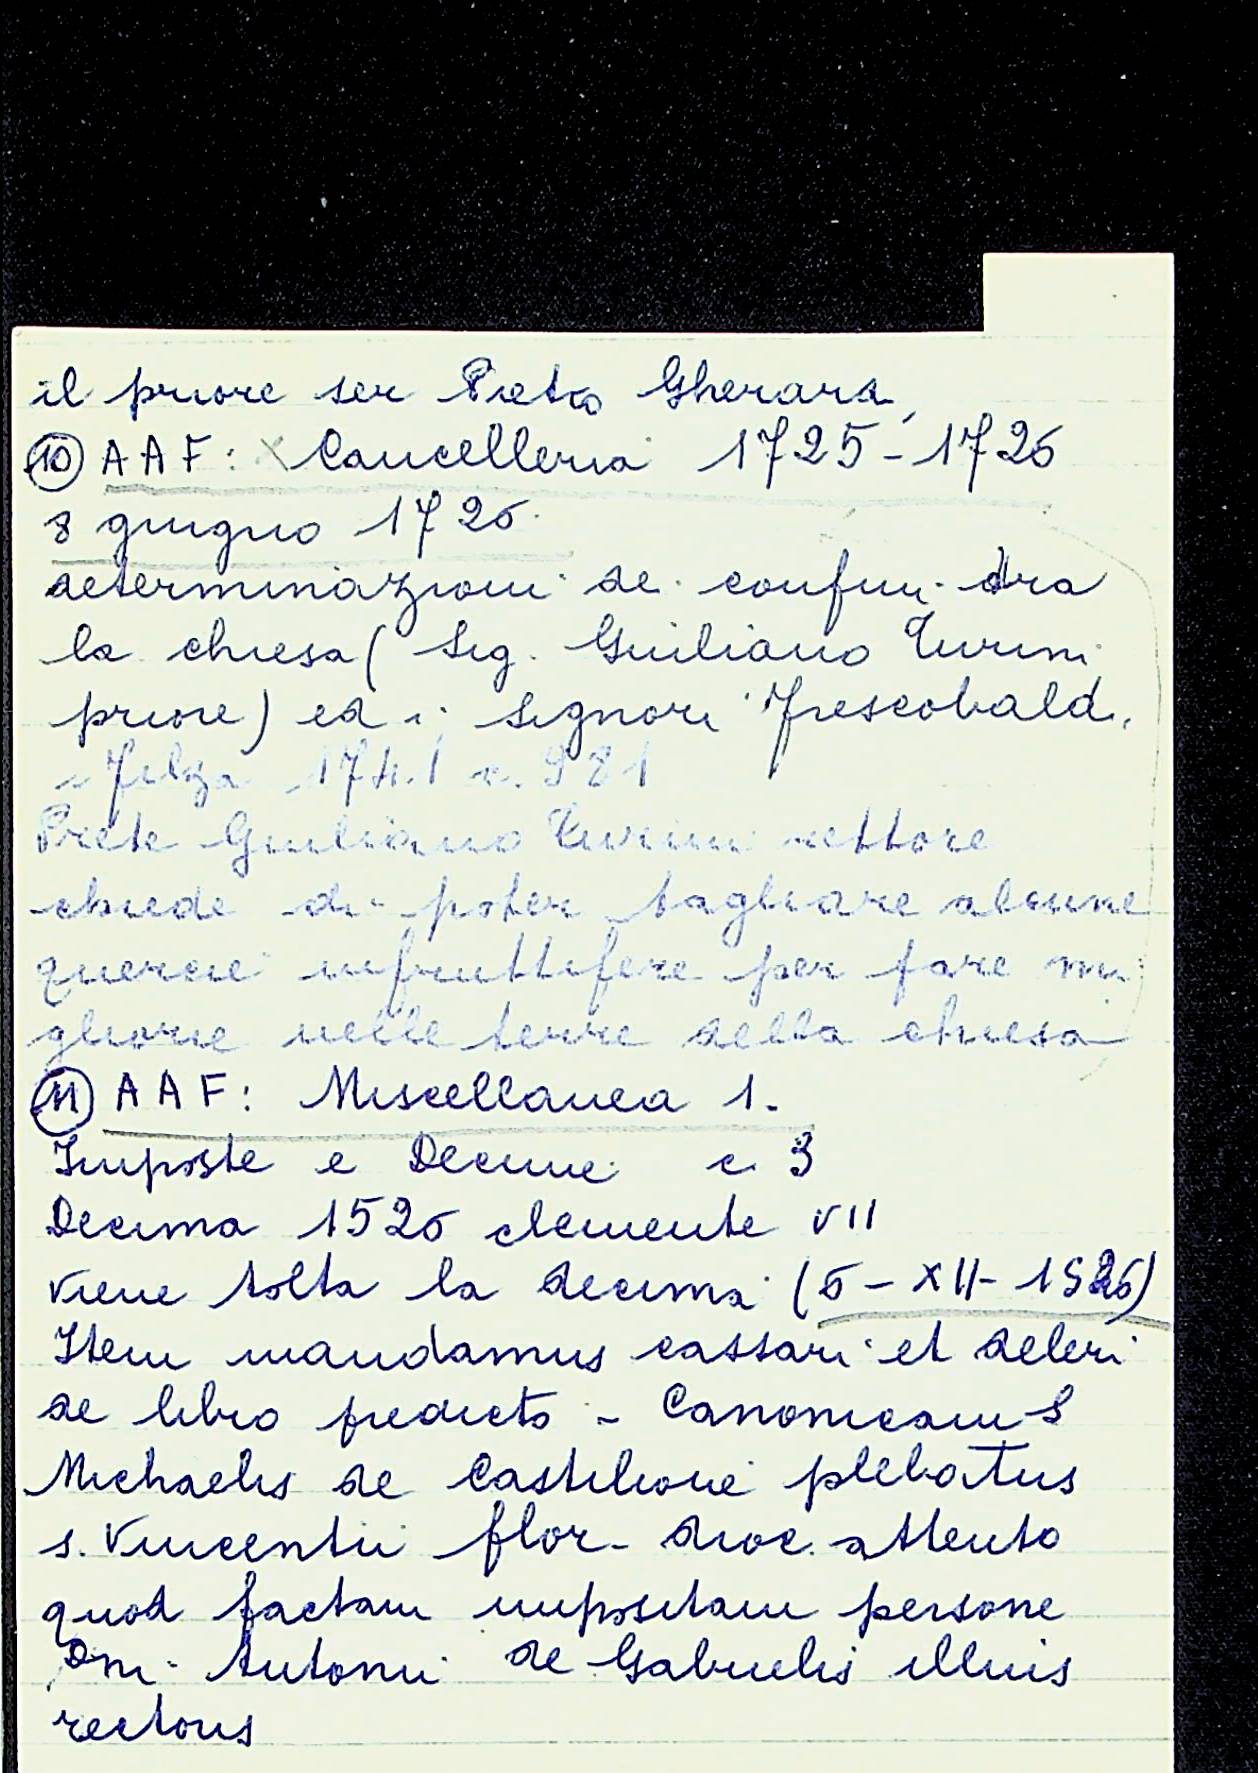 il priore ser Pietro Gherardi
(10) AAF: x Cancelleria 1725-1726
8 giugno 1726
determinazioni de confini tra
la chiesa (Sig. Giuliano Turini
priore) ed i signori Frescobaldi
Filza 174.1 c. 981
Prete Giuliano Turini rettore
chiede di poter tagliare alcune
quercie infruttifere per fare mi
gliorie nelle terre della chiesa
(11) AAF: Miscellanea 1.
Imposte e Decime c. 3
Decima 1526 clemente VII
viene tolta la decima (6-XII-1526)
Item mandamus cassari et deleri
de libro predicto - Canonicam S
Michaelis de Castilione plebatus
s. Vincentii flor. dioc. attento
quod factam impositam persone
Dni. Antonii de Gabrielis illius
rectoris